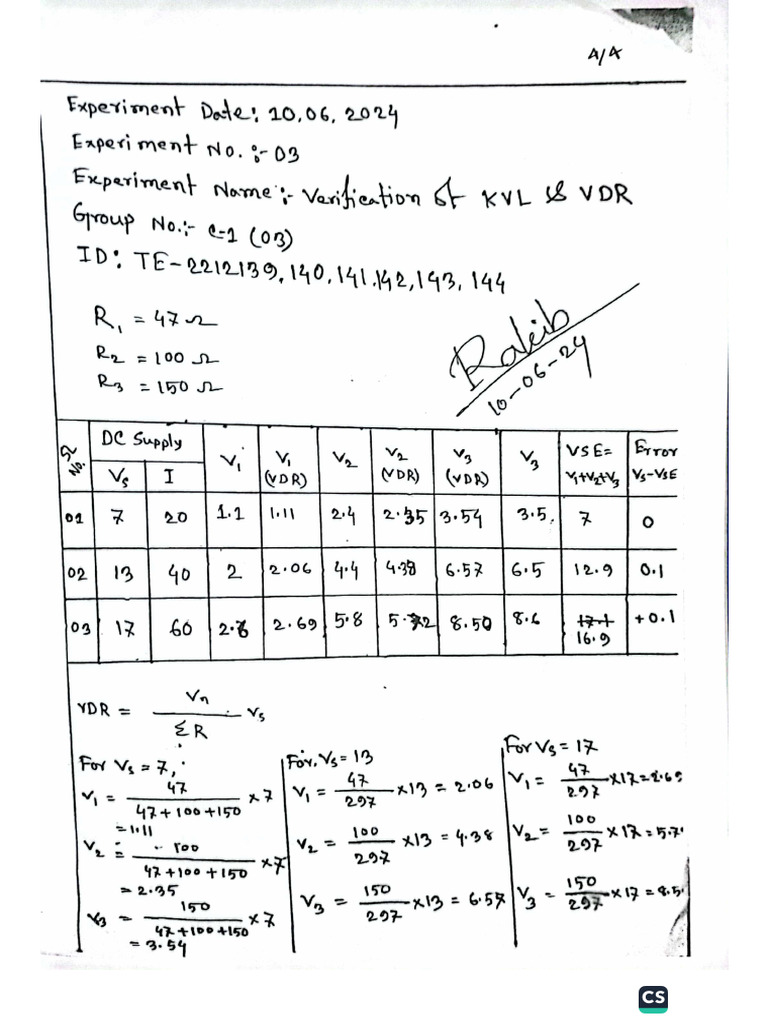 A/A
Experiment Date: 10.06.2024
Experiment No. :- 03
Experiment Name:- Verification of KVL & VDR
Group No.:- C-1 (03)
ID: TE-2212139, 140, 141, 142, 143, 144
R₁ = 47 Ω
R₂ = 100 Ω
R₃ = 150 Ω
Rakib
10-06-24
No. DC Supply V₁ V₁ (VDR) V₂ V₂ (VDR) V₃ (VDR) V₃ VSE= V₁+V₂+V₃ Error Vs-VSE
Vs I
01 7 20 1.1 1.11 2.4 2.35 3.54 3.5 7 0
02 13 40 2 2.06 4.4 4.38 6.57 6.5 12.9 0.1
03 17 60 2.69 5.8 8.50 8.6 17.1 16.9 +0.1
VDR = Vn / ΣR Vs
For Vs = 7,
V₁ = 47 / 47+100+150 ×7
= 1.11
V₂ = 100 / 47+100+150 ×7
= 2.35
V₃ = 150 / 47+100+150 ×7
= 3.54
For, Vs = 13
V₁ = 47/297 ×13 = 2.06
V₂ = 100/297 ×13 = 4.38
V₃ = 150/297 ×13 = 6.57
For Vs = 17
V₁ = 47/297 ×17 = 2.69
V₂ = 100/297 ×17 = 5.7
V₃ = 150/297 ×17 = 8.5
CS